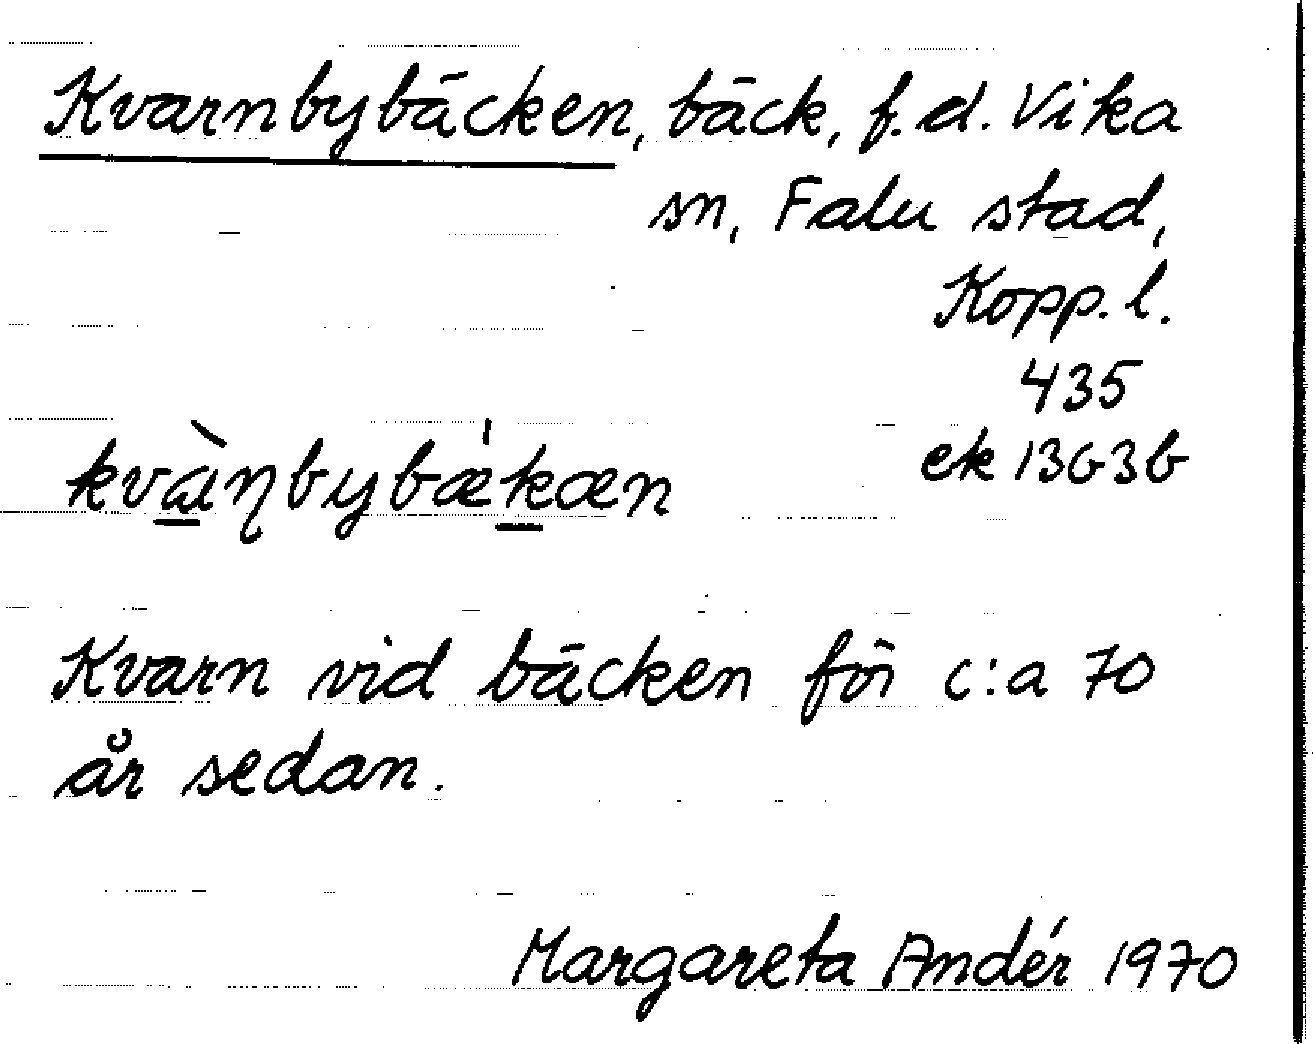 Kvarnbybäcken, bäck, f.d. Vika
sn, Falu stad,
Kopp. l.
435
ek 13G3b
kvàɳbybæ'kæn
Kvarn vid bäcken för c:a 70
år sedan.
Margareta Andér 1970